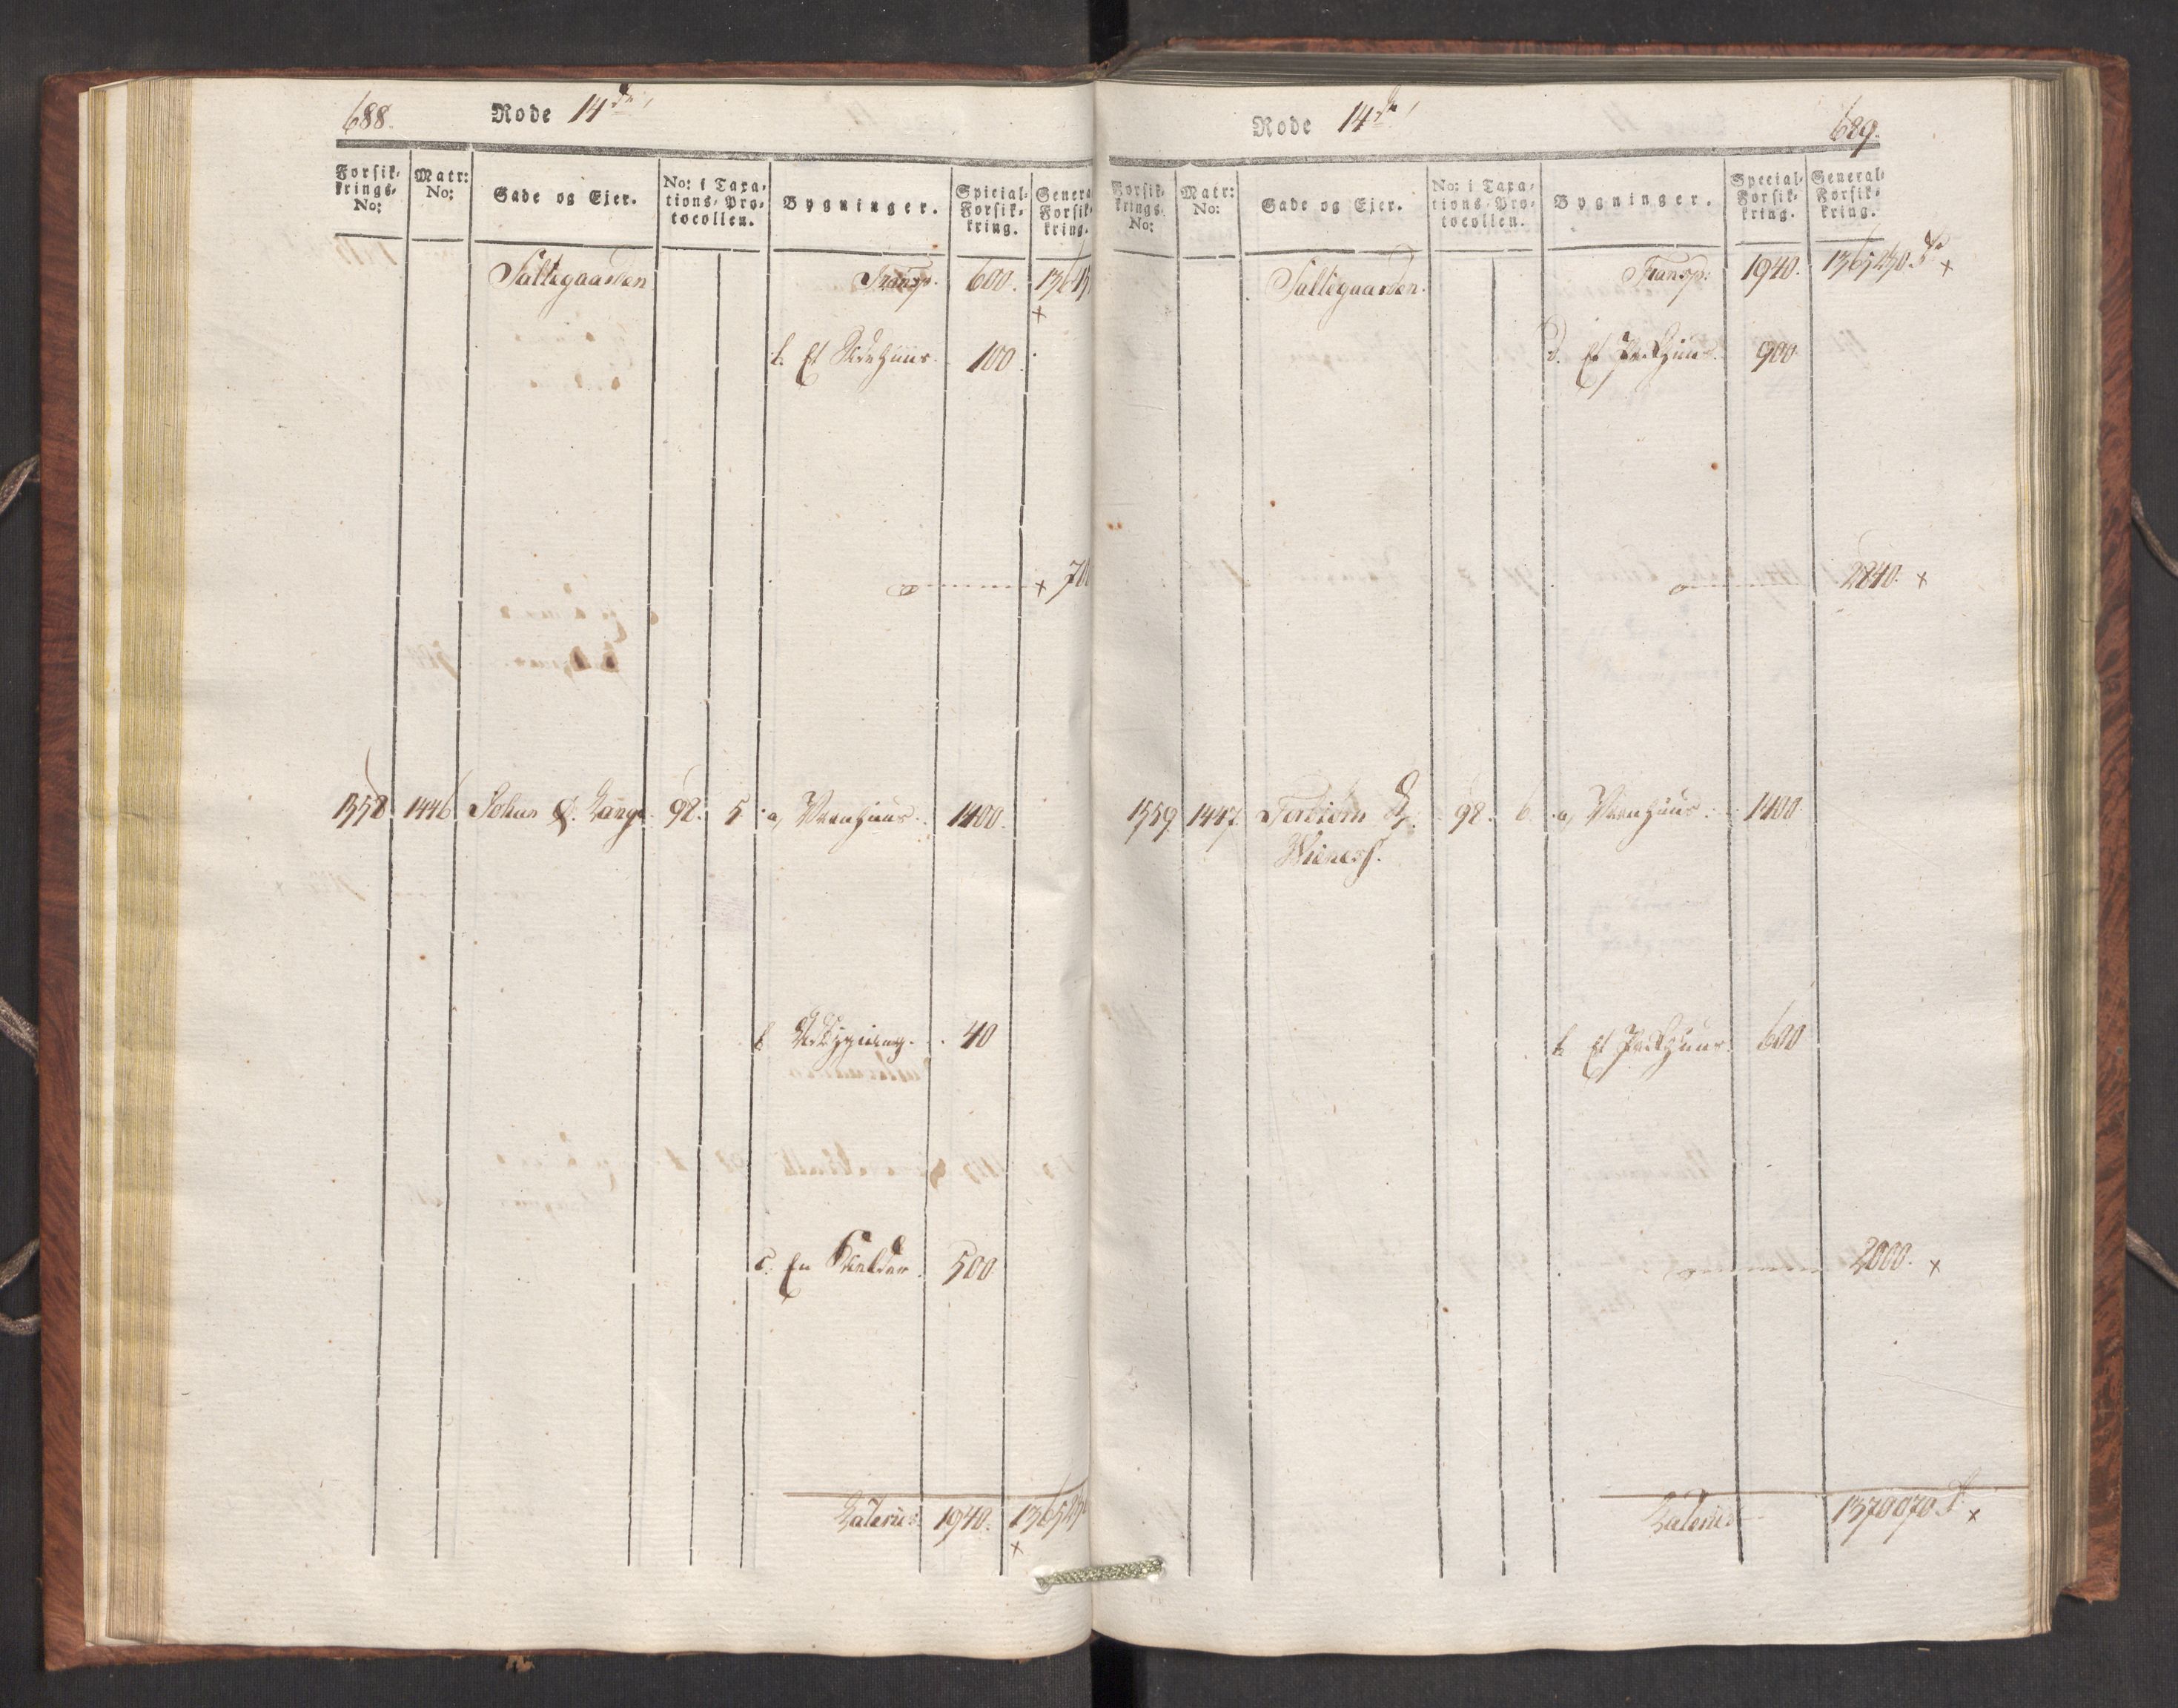 688.
Rode 14de
Forsik-
krings-
No:
Matr:
No:
Gade og Ejer.
No: i Taxa-
tions-Pro-
tocollen.
Bygninger.
Spicial-
Forsik-
kring.
Genera
Forsik-
kring.
Saltegaarden Transp. 600.
b. Et 100.
1558 1446 Johan Lange 98. 5 a, Vaanhuus 1400.
b 40
c. En Kielder 500
Lateris 1940.
689.
Rode 14de
Forsik-
krings-
No:
Matr:
No:
Gade og Ejer.
No: i Taxa-
tions-Pro-
tocollen.
Bygninger.
Special-
Forsik-
kring.
General-
Forsik-
kring.
Saltegaarden. Transp: 1940. 1365230.
d. Et Pakhuus 900
2840.
1559 1447. 98. 6. a, Vaanhuus 1400
b. Et Pakhuus 600
2000.
Lateris 1370070